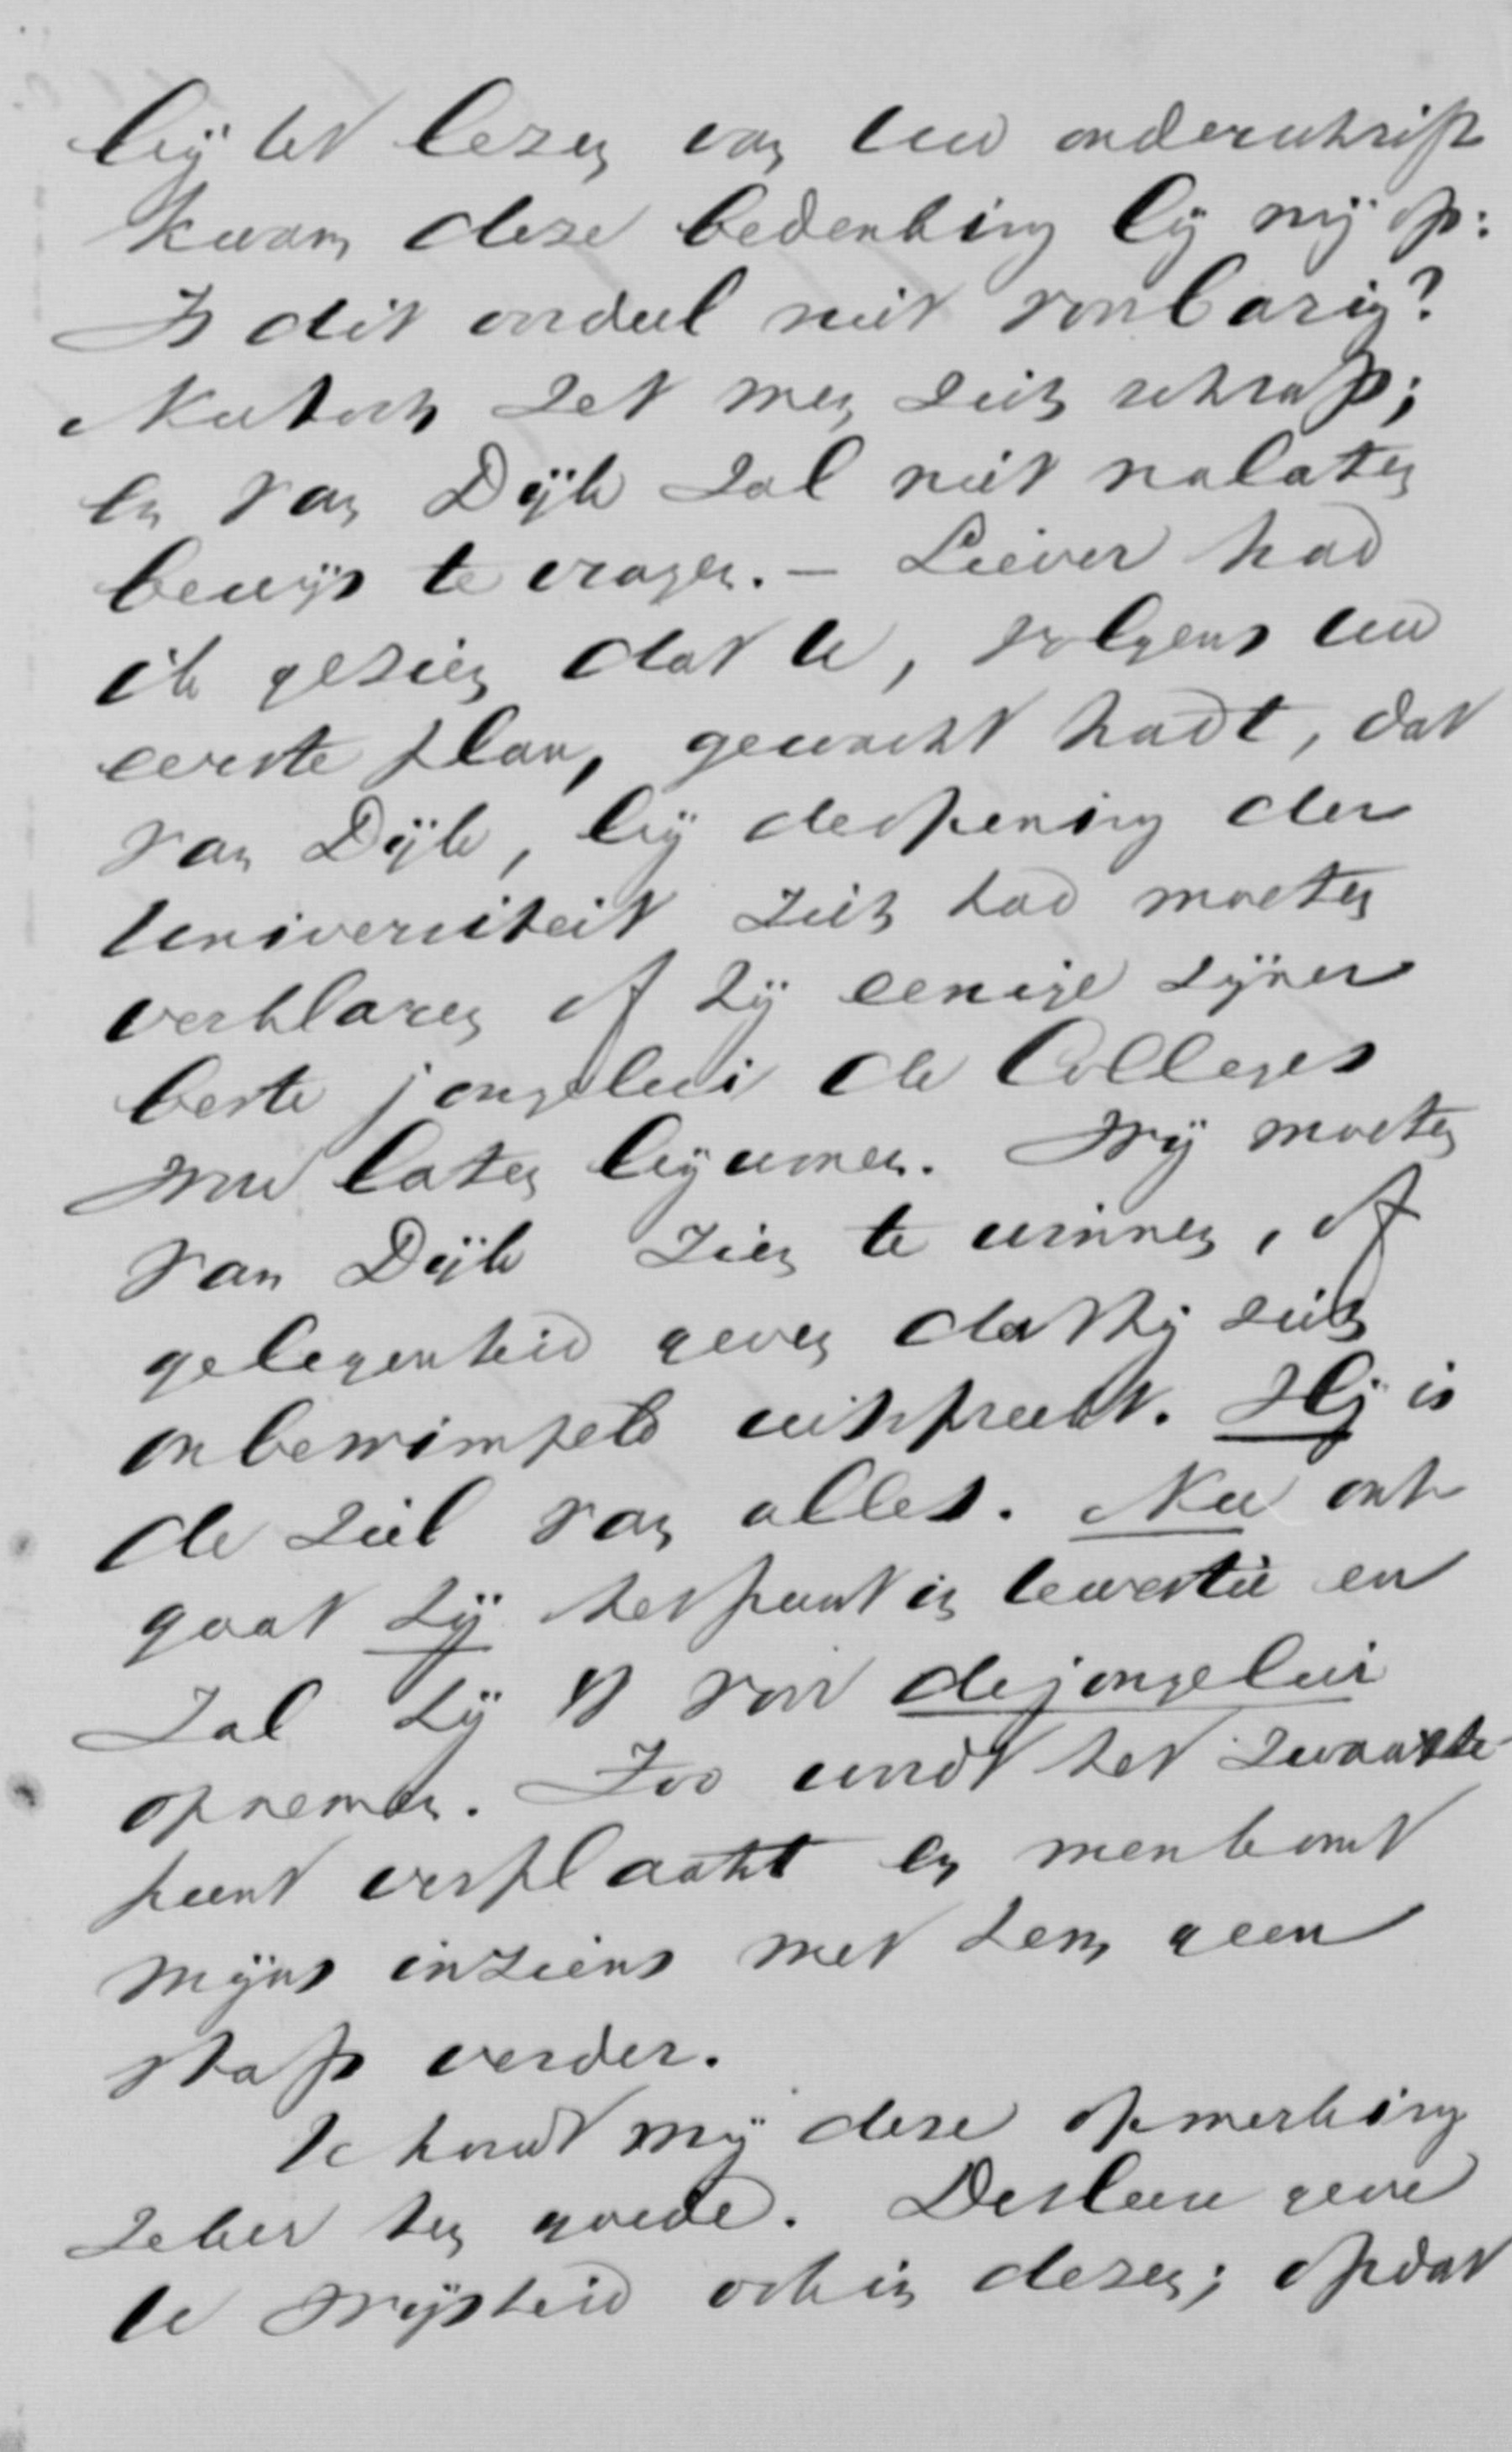 bij het lezen van uw onderschrift
kwam deze bedenking bij mij op:
Is dit oordeel niet voorbarig?
Nu toch zet men zich schrap;
en van Dijk zal niet nalaten
bewijs te vragen. – Liever had
ik gezien dat U, volgens uw
eerste plan, gewacht hadt, dat
van Dijk, bij de opening der
Universiteit zich had moeten
verklaren of hij eenige zijner
beste jongelui de Colleges
zou laten bijwonen. Wij moeten
van Dijk zien te winnen, of
gelegenheid geven dat hij zich
onbewimpeld uitspreekt. Hij is
de ziel van alles. Nu ont-
gaat hij het punt in kwestie en
zal hij 't voor de jongelui
opnemen. Zoo wordt het zwaarte-
punt verplaatst en men komt
mijns inziens met hem geen
stap verder.
U houdt mij deze opmerking
zeker ten goede. De Heere geve
U wijsheid ook in dezen; opdat